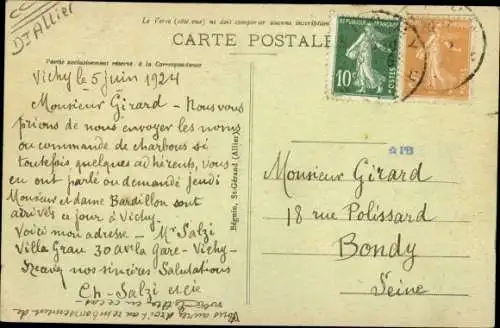 Dt Allier
Le Verso (côté vue) ne doit comporter aucune inscription
CARTE POSTALE
Partie exclusivement réservée à la Correspondance
RÉPUBLIQUE FRANÇAISE
10c
POSTES
Vichy le 5 juin 1924
Monsieur Girard - Nous vous
prions de nous envoyer les noms
ou commande de charbons si
toutefois quelques adhérents, vous
en ont parlé ou demandé jeudi
Monsieur et dame Bardillon sont
arrivés ce jour à Vichy.
Voici mon adresse - Mr Salzi
Villa Grau 30 av la gare - Vichy-
Recevez nos sincères Salutations
Ch - Salzi et Cie
Vous aurez droit au remboursement de
en ce cas-
Béguin, St-Gérand (Allier)
PB
Monsieur Girard
18 rue Polissard
Bondy
Seine